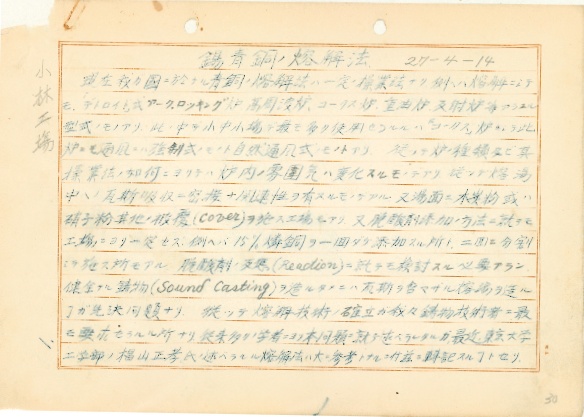 小林工場
錫青銅ノ熔解法 27-4-14
現在我ガ国ニ於ケル青銅ノ熔解法ハ一定ノ操業法ナク 例ヘバ熔解ニシテ
モ、デトロイト式アークロッキング炉 高周波炉、コークス炉、重油炉 反射炉等
型式ノモノアリ、此ノ中 中小工場デ最モ多ク使用セラルルハ コークス炉
炉モ通風ハ強制式ノモノト自然通風式ノモノトアリ 従ッテ炉ノ種類ト其
操業法ノ如何ニヨリテハ炉内ノ雰囲気ハ変化スルモノデアリ 従ッテ熔湯
中ヘノ瓦斯吸収ニ密接ナル関連性ヲ有スルモノデアル 又湯面ニ木炭粉或ハ
硝子粉其他ノ被覆(cover)ヲ施ス工場モアリ 又脱酸剤添加ノ方法ニ就テモ
工場ニヨリ一定セズ、例ヘバ15%燐銅ヲ一回ダケ添加スル所ト、二回ニ分割
シテ施ス所モアル 脱酸剤ノ反応(Reaction)ニ就テモ検討スル必要アラン
健全ナル鋳物(Sound Casting)ヲ造ルタメニハ瓦斯ヲ含マザル熔湯ヲ造ル
ガ先決問題ナリ 従ッテ熔解技術ノ確立ガ我々鋳物技術者ニ最
モ要求セラルル所ナリ 従来多クノ学者ニヨリ本問題ニ就テ述ベラレタルガ最近東京大学
工学部ノ横山正孝氏ノ述ベラレタル熔解法ハ大ニ参考トナル 茲ニ転記スル
30